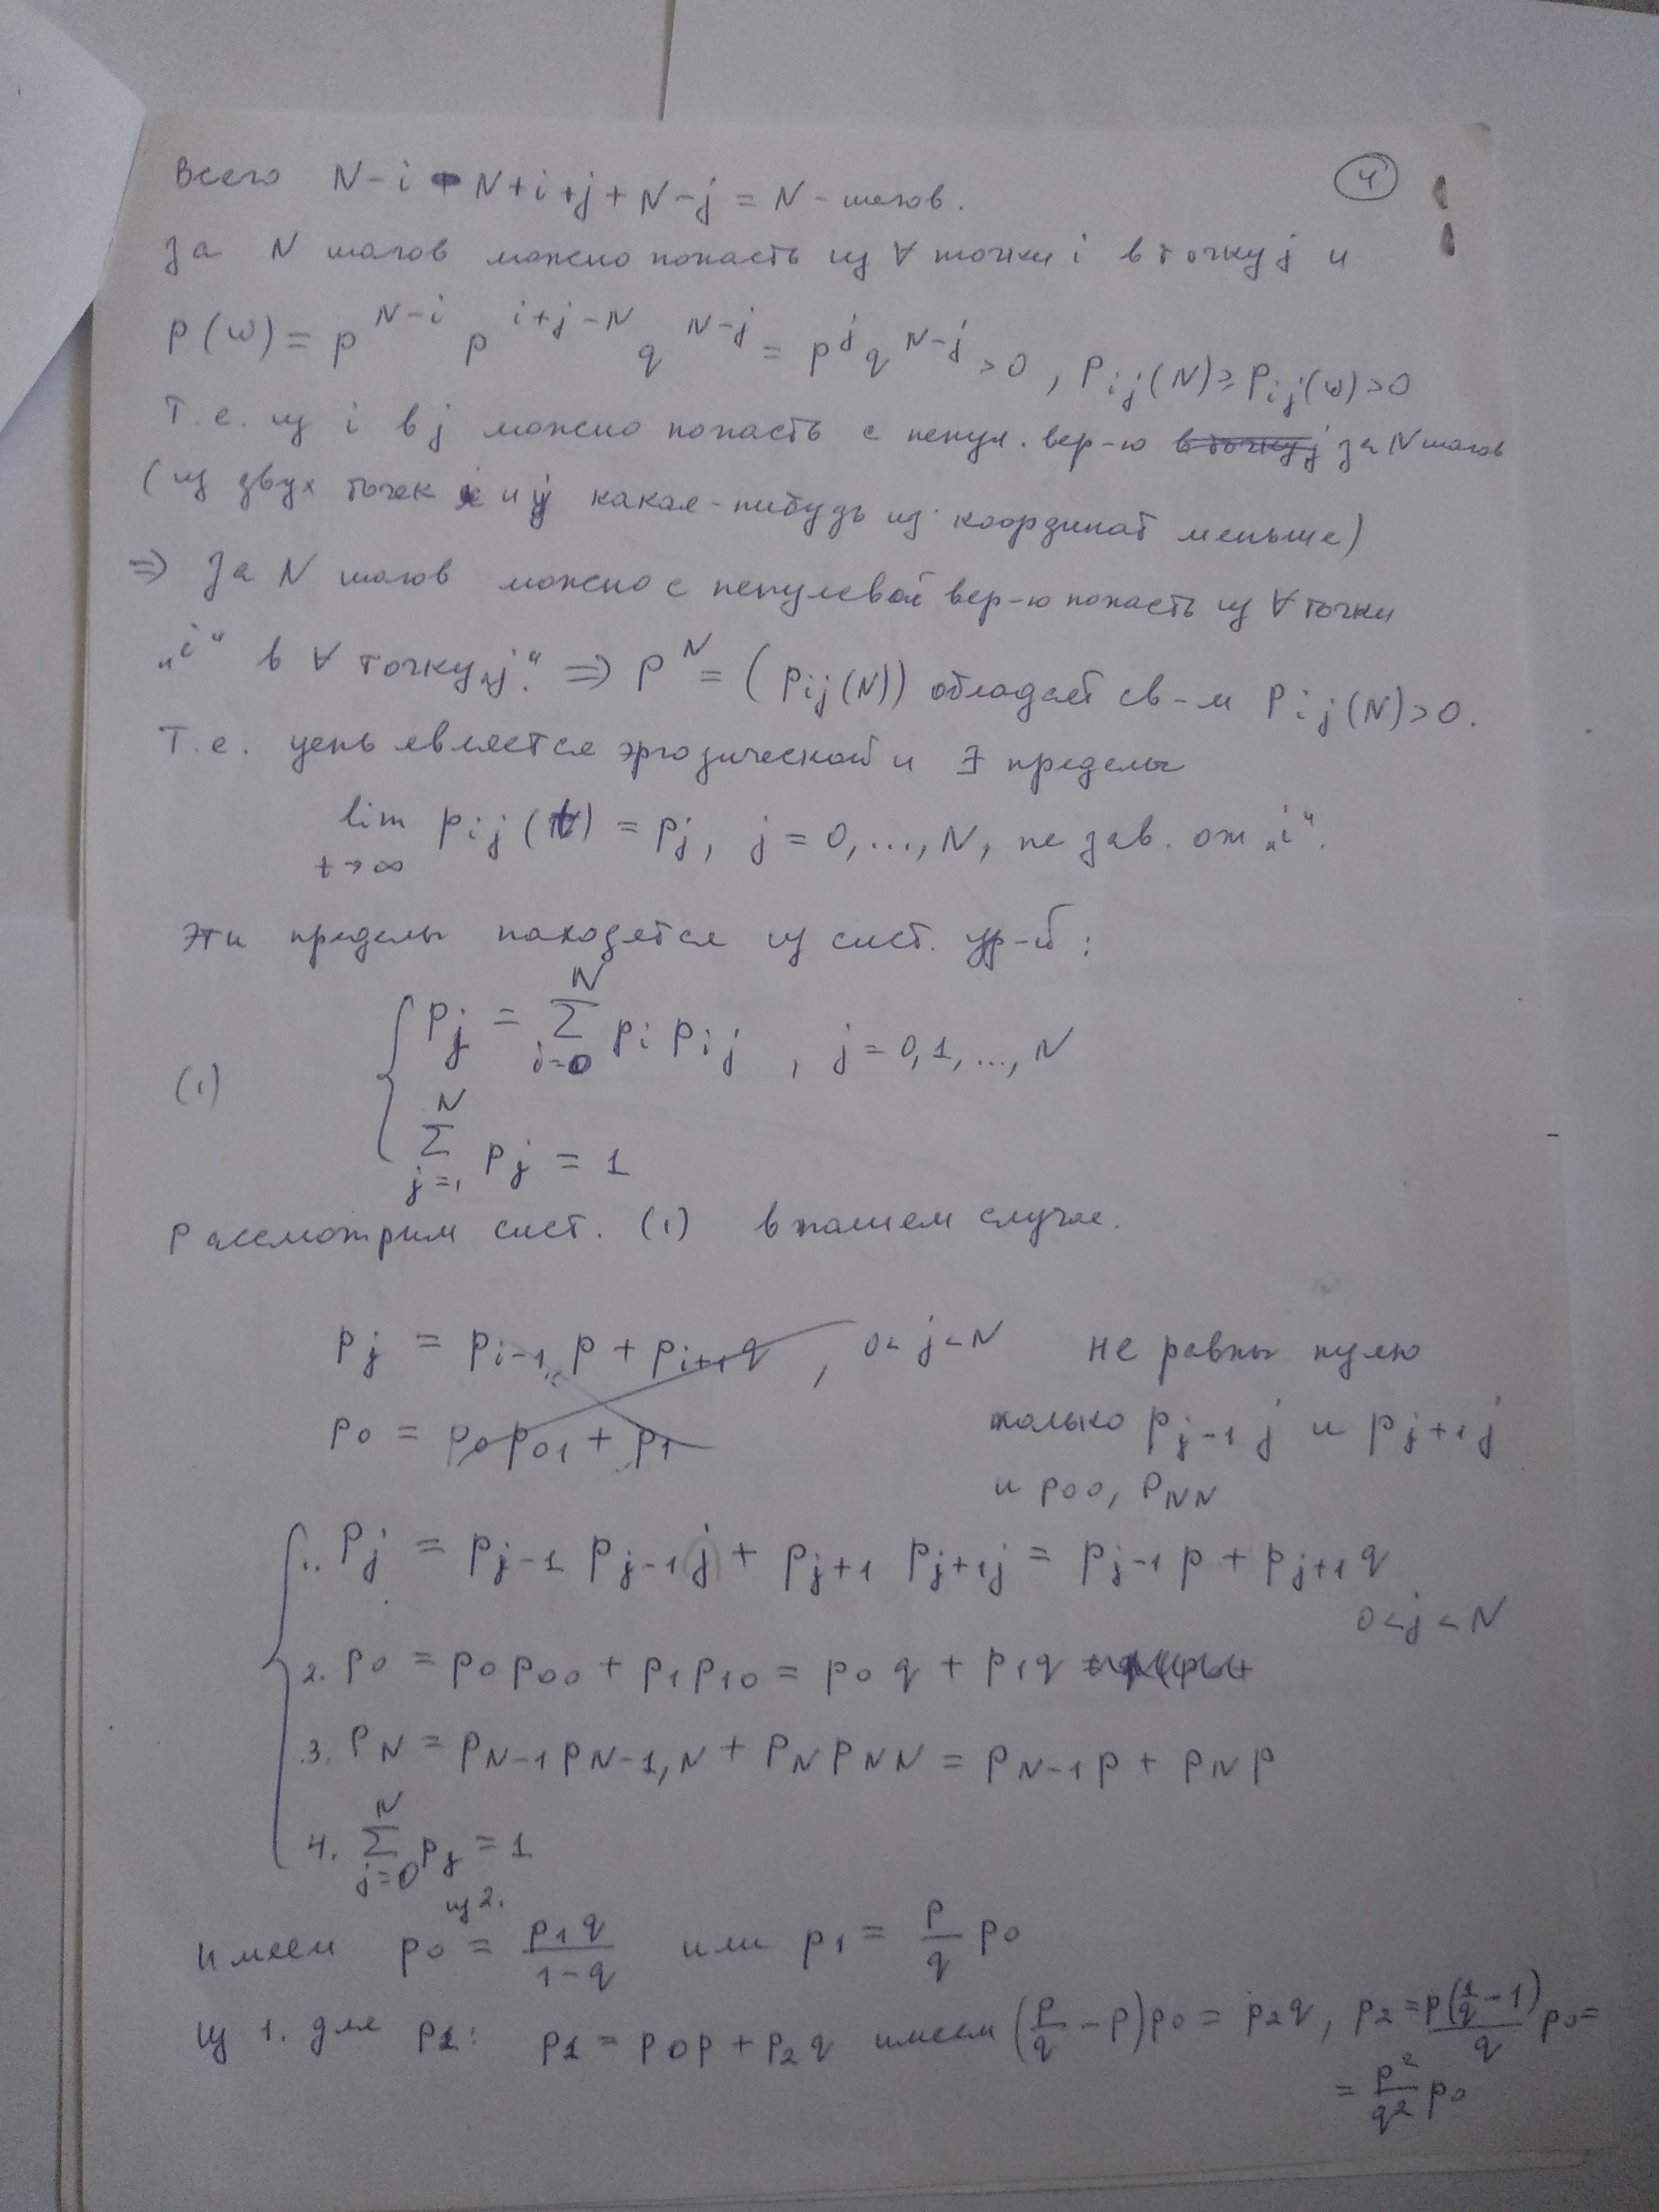 ④
Всего N-i-N+i+j+N-j = N-шагов.
За N шагов можно попасть из ∀ точки i в точку j и
P(ω) = p^{N-i} p^{i+j-N} q^{N-j} = p^j q^{N-j} > 0, P_{ij}(N) ≥ P_{ij}(ω) > 0
Т.е. из i в j можно попасть с ненул. вер-ю в точку j за N шагов
(из двух точек i и j какая-нибудь из координат меньше)
⇒ За N шагов можно с ненулевой вер-ю попасть из ∀ точки
„i“ в ∀ точку „j“. ⇒ P^N = (p_{ij}(N)) обладает св-м P_{ij}(N) > 0.
Т.е. цепь является эргодической и ∃ пределы
lim p_{ij}(t) = p_j, j = 0, ..., N, не зав. от „i“.
t→∞
Эти пределы находятся из сист. ур-й:
(1) { p_j = Σ_{i=0}^{N} p_i p_{ij}, j = 0, 1, ..., N
Σ_{j=1}^{N} p_j = 1
Рассмотрим сист. (1) в нашем случае.
p_j = p_{i-1} p + p_{i+1} q, 0 < j < N не равны нулю
p_0 = p_0 p_{01} + p_1 только p_{j-1 j} и p_{j+1 j}
и p_{00}, p_{NN}
1. p_j = p_{j-1} p_{j-1 j} + p_{j+1} p_{j+1 j} = p_{j-1} p + p_{j+1} q
0 < j < N
2. p_0 = p_0 p_{00} + p_1 p_{10} = p_0 q + p_1 q
3. p_N = p_{N-1} p_{N-1,N} + p_N p_{NN} = p_{N-1} p + p_N p
4. Σ_{j=0}^{N} p_j = 1
из 2.
Имеем p_0 = \frac{p_1 q}{1-q} или p_1 = \frac{p}{q} p_0
Из 1. для p_1: p_1 = p_0 p + p_2 q имеем (\frac{p}{q} - p) p_0 = p_2 q, p_2 = \frac{p(\frac{1}{q} - 1)}{q} p_0 =
= \frac{p^2}{q^2} p_0